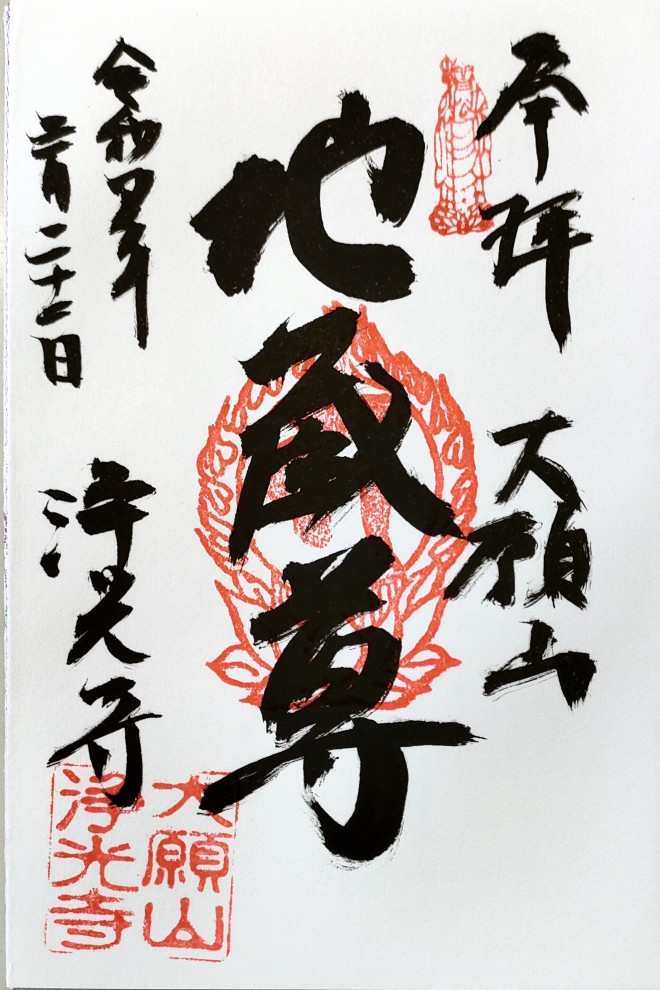 奉拝 大願山
地蔵尊
令和四年
三月二十一日
浄光寺
大願山
浄光寺